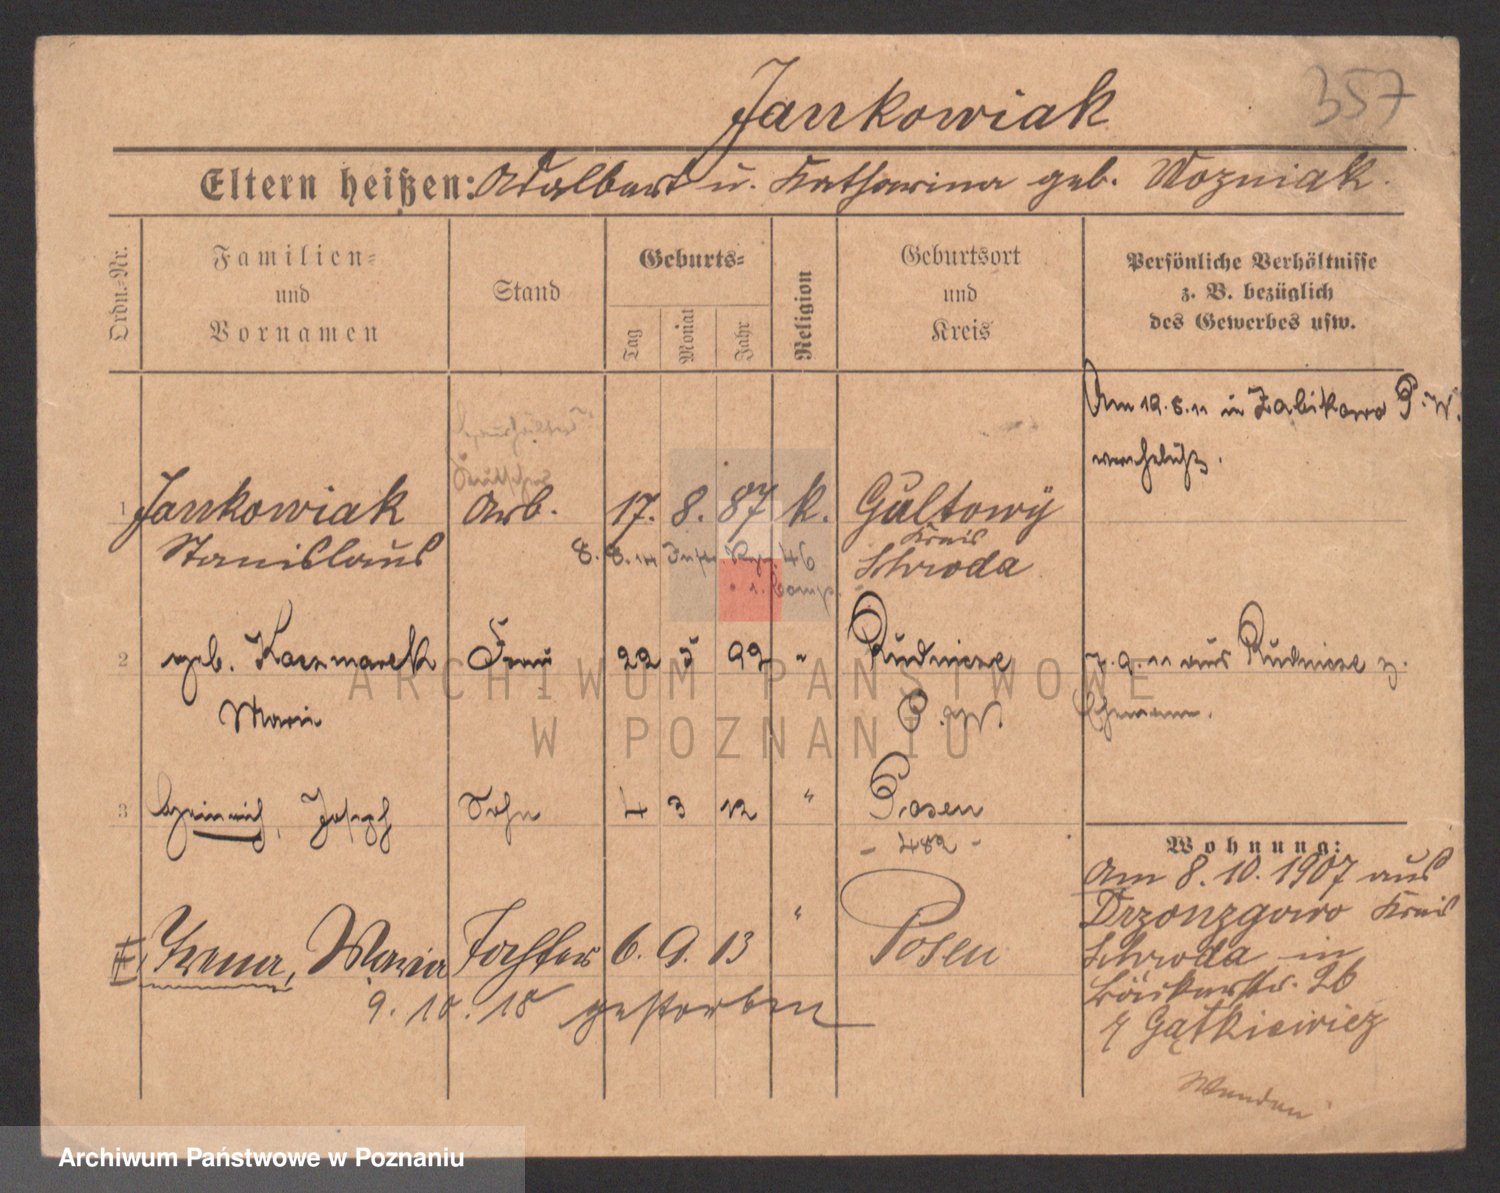 Jankowiak
357
Eltern heißen: Adalbert u. Katharina geb. Wozniak.
Ordn.-Nr.
Familien-
und
Vornamen
Stand
Geburts-
Tag
Monat
Jahr
Religion
Geburtsort
und
Kreis
Persönliche Verhältnisse
z. B. bezüglich
des Gewerbes usw.
Am 12.5.11 in Zabikowo P. W.
verehelicht.
1 Jankowiak Arb. 17. 8. 87 k. Gultowy
Kreis
Stanislaus Schroda
8. 8. 14 Inftr Rgt. 46
1. Comp.
2 geb. Kaczmarek Frau 22 5 92 " Rudnicze 7.9.11 aus Rudnicze z.
Marie P. W. Ehemann.
3 Heinrich, Joseph Sohn 4 3 12 " Posen
- 482 -
Wohnung:
Am 8. 10. 1907 aus
Drzonzgowo Kreis
Schroda in
Bäckerstr. 26
Irena, Maria Tochter 6. 9. 13 " Posen
9. 10. 18 gestorben
Gątkiewicz
Wenden
ARCHIWUM PAŃSTWOWE
W POZNANIU
Archiwum Państwowe w Poznaniu